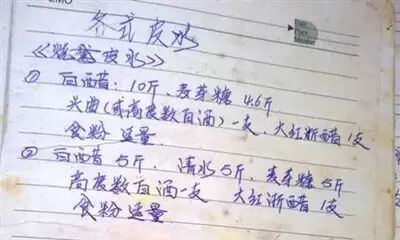 MEMO
Date
Place
Member
各式皮水
《烧鹅皮水》
① 白醋:10斤、麦芽糖4.6斤
头曲(或高度数白酒)一支、大红浙醋1支
食粉 适量
② 白醋5斤、清水5斤、麦芽糖5斤
高度数白酒一支 大红浙醋1支
食粉 适量